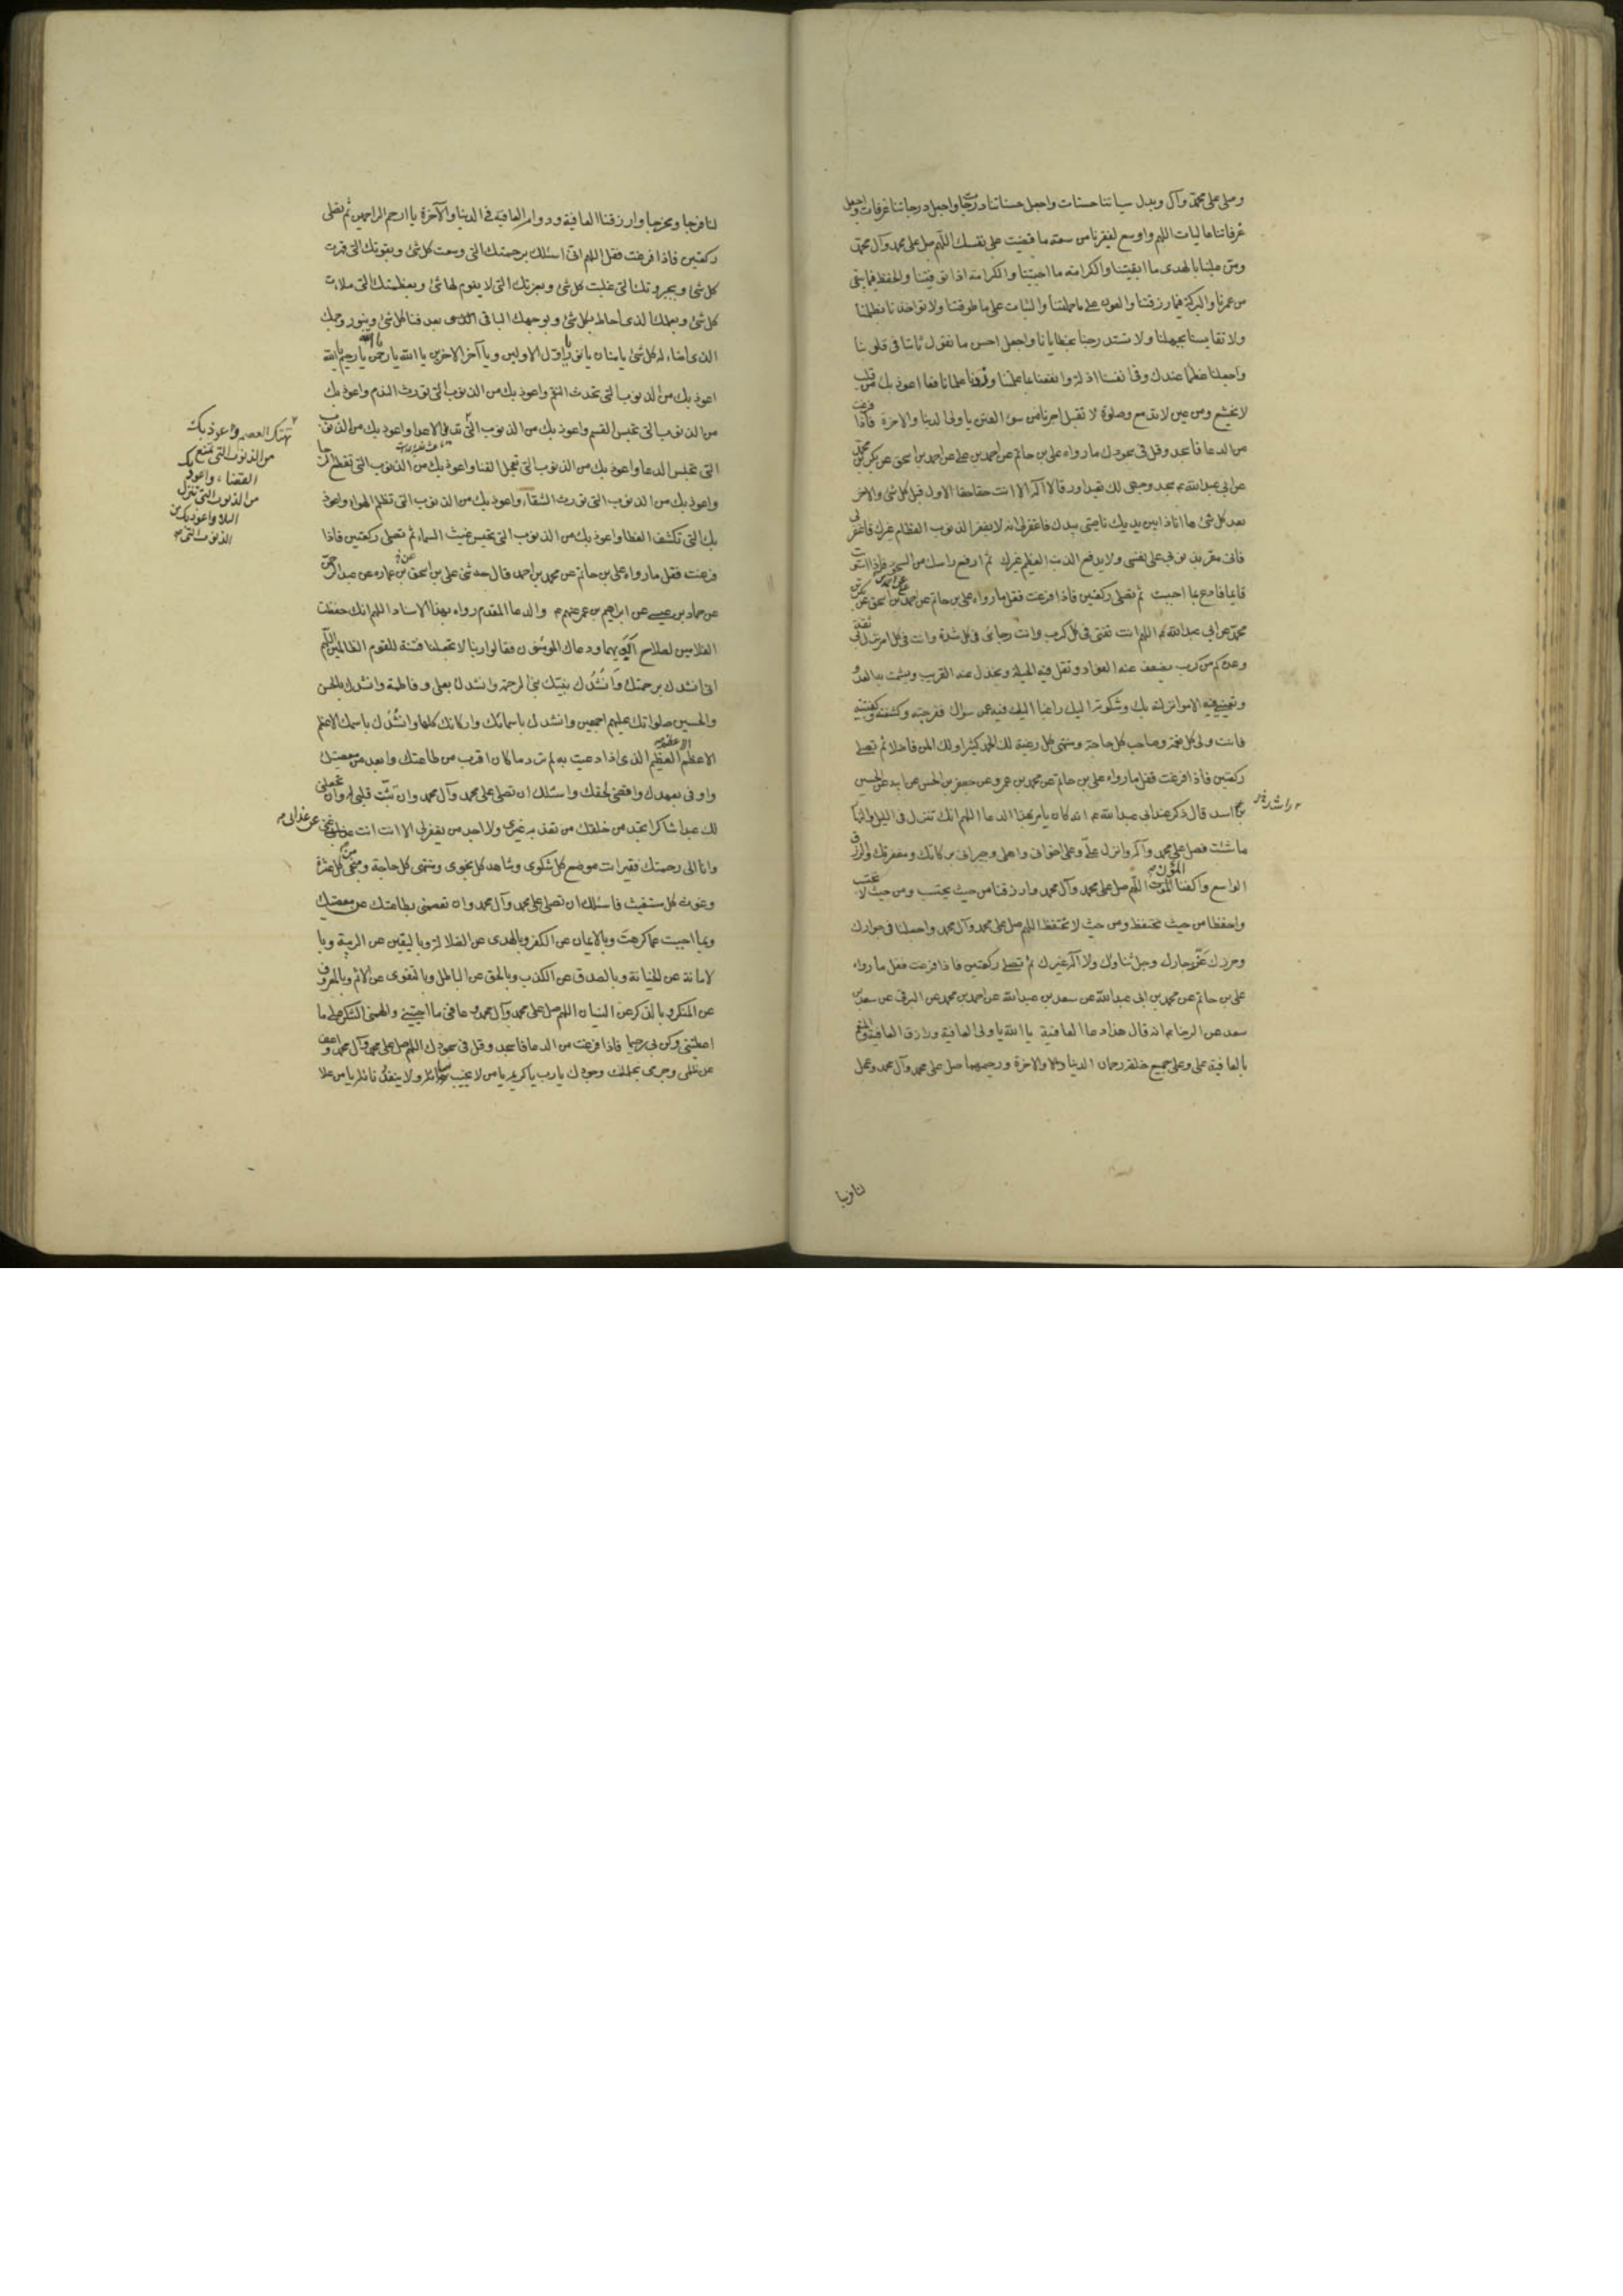 وصلى على محمد وآل وبدل سياتنا حسنات واجعل حسناتنا درجات واجعل درجاتنا غرفات واجعل
غرفاتنا عاليات اللهم واوسع لفقرنا من سعة ما قضيت على نفسك اللهم صل على محمد وآل محمد
ومن علينا بالهدى ما ابقيتنا والكرامة ما احييتنا والكرامة اذا توفيتنا والحفظ فيما بقى
من عمرنا والبركة فيما رزقتنا والعون على ما حملتنا والثبات على ما طوقتنا ولا تواخذنا بظلمنا
ولا تقايسنا بجهلنا ولا تستدرجنا بخطايانا واجعل احسن ما نقول ثابتا فى قلوبنا
واجعلنا عظما عندك وفى انفسنا اذلة وانفعنا بما علمتنا وزدنا علما نافعا اعوذ بك من قلب
لا يخشع ومن عين لا تدمع وصلوة لا تقبل اجرنا من سوء الفتن يا ولى الدنيا والاخرة فاذا فرغت
من الدعا فاسجد وقل فى سجودك ما رواه على بن حاتم عن احمد بن على عن احمد بن اسحق عن بكر بن محمد
عن ابى عبد الله سجد وجهى لك تعبدا ورقا لا اله الا انت حقا حقا الاول قبل كل شئ والاخر
بعد كل شئ ها انا ذا بين يديك ناصيتى بيدك فاغفر لى انه لا يغفر الذنوب العظام غيرك فاغفر لى
فانى مقر بذنوبى على نفسى ولا يدفع الذنب العظيم غيرك ثم ارفع راسك من السجود فاذا استويت
قايما فادع بما احببت ثم تصلى ركعتين فاذا فرغت فقل ما رواه على بن حاتم عن احمد بن اسحق عن بكر بن
محمد عن ابى عبد الله اللهم انت ثقتى فى كل كرب وانت رجائى فى كل شدة وانت فى كل امر نزل بى ثقة
وعدة كم من كرب يضعف عنه الفؤاد وتقل فيه الحيلة ويخذل عنه القريب ويشمت به العدو
وتعنينى فيه الامور انزلته بك وشكوته اليك راغبا اليك فيه عمن سواك ففرجته وكشفته وكفيتنيه
فانت ولى كل نعمة وصاحب كل حاجة ومنتهى كل رغبة لك الحمد كثيرا ولك المن فاضلا ثم تصلى
ركعتين فاذا فرغت فقل ما رواه على بن حاتم عن محمد بن عمرو عن جعفر بن الحسن عن ابيه عن الحسين
بن راشد
اسد قال ذكر عند ابى عبد الله انه كان يامر بهذا الدعا اللهم انك تنزل فى الليل والنهار
ما شئت فصل على محمد وآله وانزل على وعلى اخوانى واهلى وجيرانى بركاتك ومغفرتك والرزق
الواسع واكفنا المؤن اللهم صل على محمد وآل محمد وارزقنا من حيث يحتسب ومن حيث لا يحتسب
واحفظنا من حيث نحتفظ ومن حيث لا نحتفظ اللهم صل على محمد وآل محمد واجعلنا فى جوارك
وحرزك عز جارك وجل ثناؤك ولا اله غيرك ثم تصلى ركعتين فاذا فرغت فقل ما رواه
على بن حاتم عن محمد بن ابى عبد الله عن سعد بن عبد الله عن احمد بن محمد عن البرقى عن سعد بن
سعد عن الرضا انه قال هذا دعا العافية يا الله يا ولى العافية ورازق العافية والمنعم
بالعافية على وعلى جميع خلقه رحمان الدنيا والاخرة ورحيمهما صل على محمد وآل محمد وعجل
لنا فرجا
لنا فرجا ومخرجا وارزقنا العافية ودوام العافية فى الدنيا والآخرة يا ارحم الراحمين ثم تصلى
ركعتين فاذا فرغت فقل اللهم انى اسئلك برحمتك التى وسعت كل شئ وبقوتك التى قهرت
كل شئ وبجبروتك التى غلبت كل شئ وبعزتك التى لا يقوم لها شئ وبعظمتك التى ملات
كل شئ وبعلمك الذى احاط بكل شئ وبوجهك الباقى بعد فنا كل شئ وبنور وجهك
الذى اضاء له كل شئ يا منان يا نور يا اول الاولين ويا آخر الاخرين يا الله يا رحمن يا الله يا رحيم يا الله
اعوذ بك من الذنوب التى تحدث النقم واعوذ بك من الذنوب التى تورث الندم واعوذ بك
من الذنوب التى تحبس القسم واعوذ بك من الذنوب التى تهتك العصم واعوذ بك
من الذنوب التى تمنع
القضاء واعوذ بك
من الذنوب التى تنزل
البلا واعوذ بك من
الذنوب التى
تديل الاعدا واعوذ بك من الذنوب
التى تحبس الدعا واعوذ بك من الذنوب التى تعجل الفنا واعوذ بك من الذنوب التى تقطع الرجا
واعوذ بك من الذنوب التى تورث الشقاء واعوذ بك من الذنوب التى تظلم الهواء واعوذ
بك التى تكشف الغطا واعوذ بك من الذنوب التى تحبس غيث السماء ثم تصلى ركعتين فاذا
فرغت فقل ما رواه على بن حاتم عن محمد بن احمد قال حدثنى على بن اسحق بن عماره عن عبد الرحمن
عن حماد بن عيسى عن ابراهيم بن عمر عنهم والدعا المقدم رواه بهذا الاسناد اللهم انك حفظت
الغلامين لصلاح ابويهما ودعاك المؤمنون فقالوا ربنا لا تجعلنا فتنة للقوم الظالمين اللهم
انى انشدك برحمتك وانشدك بنبيك نبى الرحمة وانشدك بعلى وفاطمة وانشدك بالحسن
والحسين صلواتك عليهم اجمعين وانشدك باسمائك واركانك كلها وانشدك باسمك الاعظم
الاعظم الاعظم العظيم الذى اذا دعيت به لم ترد ما كان اقرب من طاعتك وابعد من معصيتك
واوفى بعهدك واقضى لحقك واسئلك ان تصلى على محمد وآل محمد وان تثبت قلبى له وان تجعلنى
لك عبدا شاكرا تجد من خلقك من تعذبه غيرى ولا اجد من يغفر لى الا انت انت غنى عن عذابى
وانا الى رحمتك فقير انت موضع كل شكوى وشاهد كل نجوى ومنتهى كل حاجة ومنجى من كل عثرة
وغوث كل مستغيث فاسئلك ان تصلى على محمد وآل محمد وان تعصمنى بطاعتك عن معصيتك
وبما احببت عما كرهت وبالايمان عن الكفر وبالهدى عن الضلالة وباليقين عن الريبة وبا
لامانة عن الخيانة وبالصدق عن الكذب وبالحق عن الباطل وبالتقوى عن الاثم وبالمعروف
عن المنكر وبالذكر عن النسيان اللهم صل على محمد وآل محمد وعافنى ما احييتنى والهمنى الشكر على ما
اعطيتنى وكن بى رحيما فاذا فرغت من الدعا فاسجد وقل فى سجودك اللهم صل على محمد وآل محمد واعف
عن ظلمى وجرمى بحلمك وجودك يا رب يا كريم يا من لا يخيب سائله ولا ينفد نائله يا من علا